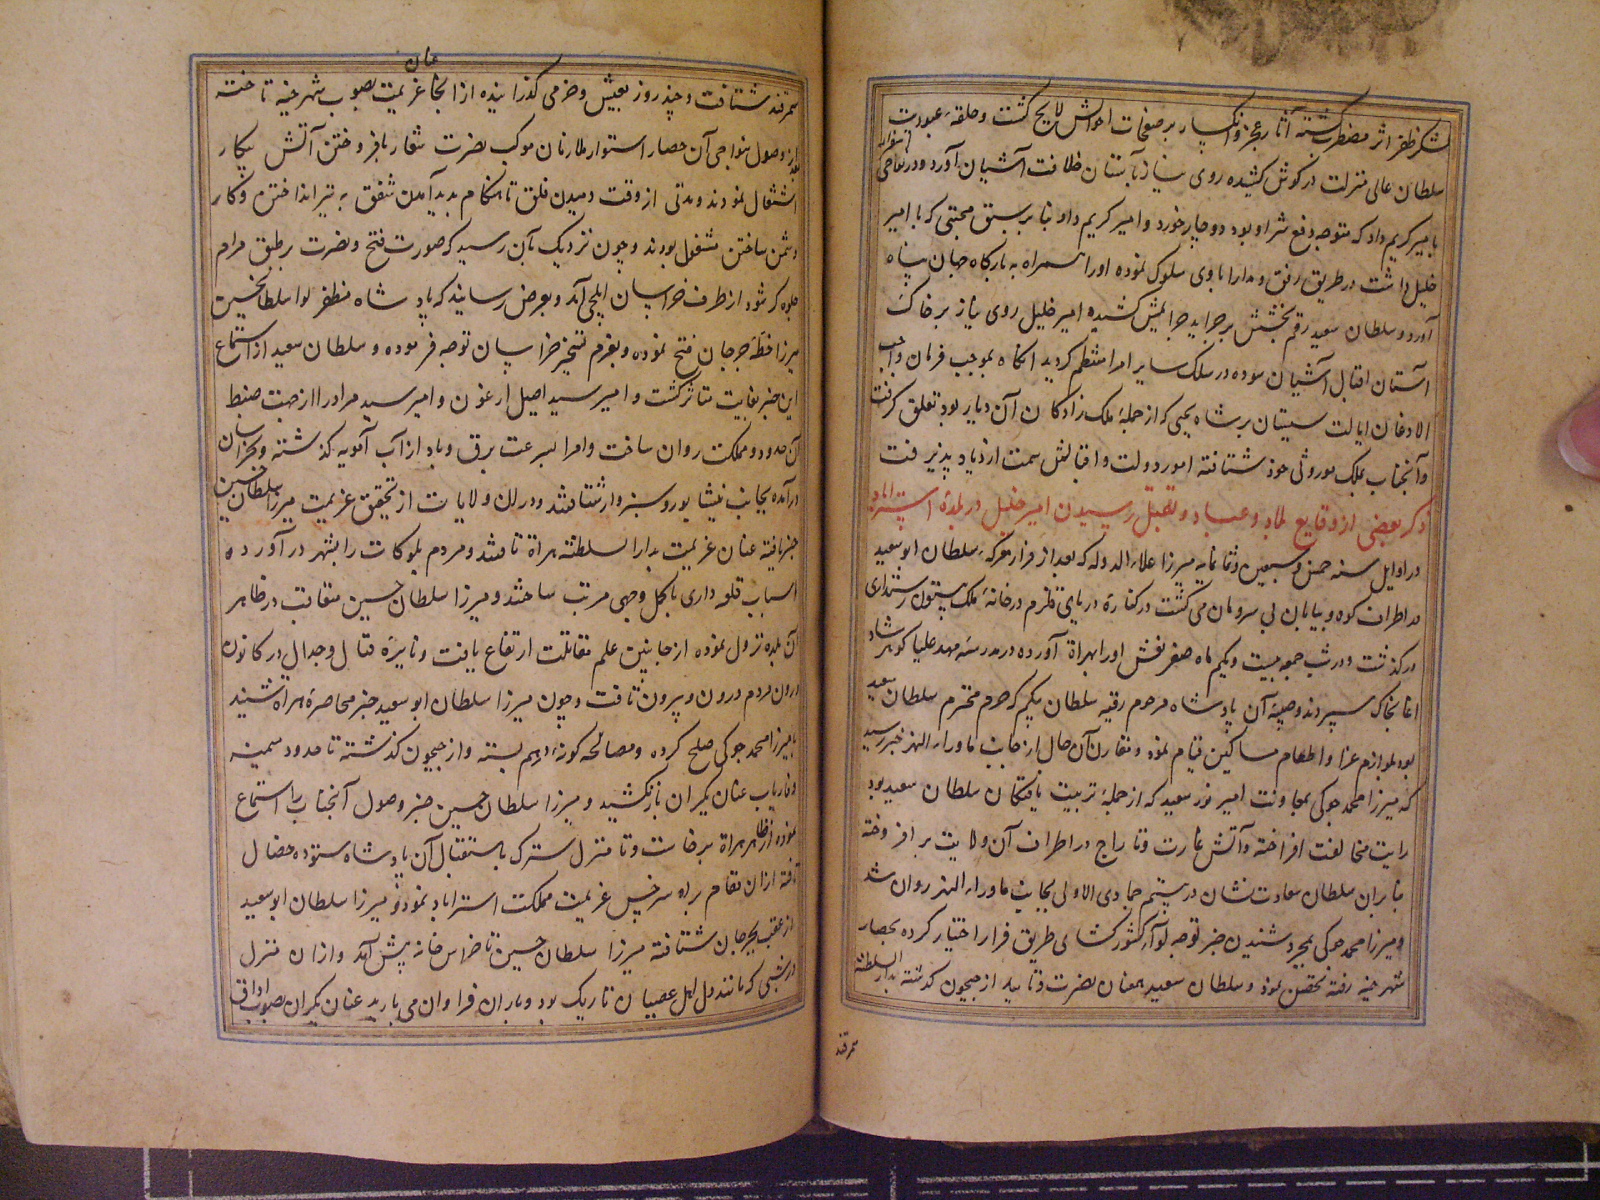 لشکر ظفر اثر مضطر گشته آثار عجز و انکسار بر صفحات احوالش لایح گشت و حلقهٔ عبودیت
سلطان عالی منزلت در گوش کشیده روی نیاز بآستان خلافت آشیان آورد و در نواحی اسفزار
بامیر کریم داد که متوجه دفع شر او بود دوچار خورد و امیر کریم داد بنا بر سبق محبتی که با امیر
خلیل داشت در طریق رفق و مدارا با وی سلوک نموده او را همراه به بارگاه جهان پناه
آورد و سلطان سعید رقم بخشش بر جراید جرایمش کشیده امیر خلیل روی نیاز بر خاک
آستان اقبال آشیان سوده در سلک سایر امرا منتظم گردید آنگاه بموجب فرمان واجب
الاذعان ایالت سیستان بر شاه یحیی که از جملهٔ ملک زادگان آن دیار بود تعلق گرفت
و آنجناب بملک موروثی خود شتافته امور دولت و اقبالش سمت ازدیاد پذیرفت
ذکر بعضی از وقایع بلاد و عباد و بقتل رسیدن امیر خلیل در بلدهٔ استراباد
در اوایل سنه خمس و سبعین و ثمانمایه میرزا علاء الدوله که بعد از فرار معرکهٔ سلطان ابو سعید
در اطراف کوه و بیابان بی سر و سامان می گشت در کنارهٔ دریای قلزم در خانهٔ ملک بیستون رستمداری
درگذشت و در شب جمعه بیست و یکم ماه صفر نعش او را بهراة آورده در مدرسهٔ مهد علیا گوهرشاد
آغا بخاک سپردند و صبیهٔ آن پادشاه مرحوم رقیه سلطان بیگم که حرم محترم سلطان سعید
بود بلوازم عزا و اطعام مساکین قیام نمود و مقارن آن حال از جانب ماوراء النهر خبر رسید
که میرزا محمد جوکی بمعاونت امیر نور سعید که از جملهٔ تربیت یافتگان سلطان سعید بود
رایت مخالفت افراخته و آتش غارت و تاراج در اطراف آن ولایت بر افروخته
بنا بر آن سلطان سعادت نشان در بیستم جمادی الاولی بجانب ماوراء النهر روان شد
و میرزا محمد جوکی بمجرد شنیدن خبر توجه لوای کشورگشای طریق فرار اختیار کرده بحصار
شهرخیه رفته تحصن نمود و سلطان سعید بعنان نصرت و تایید از جیحون گذشته بدار السلطنه
سمرقند
سمرقند شتافت و چند روز بعیش و خرمی گذرانیده از آنجا عنان عزیمت بصوب شهرخیه تافته
بعد از وصول بنواحی آن حصار استوار ملازمان موکب نصرت شعار بافروختن آتش پیکار
اشتغال نمودند و مدتی از وقت دمیدن فلق تا هنگام پدید آمدن شفق به تیر انداختن و کار
دشمن ساختن مشغول بودند و چون نزدیک بآن رسید که صورت فتح و نصرت بر طبق مرام
جلوه گر شود از طرف خراسان ایلچی آمد و بعرض رسانید که پادشاه مظفر لوا سلطان حسین
میرزا خطهٔ جرجان فتح نموده و بعزم تسخیر خراسان توجه فرموده و سلطان سعید از استماع
این خبر بغایت متاثر گشت و امیر سید اصیل ارغون و امیر سید مراد را از جهت ضبط
آن حدود و مملکت روان ساخت و امرا بسرعت برق و باد از آب آمویه گذشته و بخراسان
درآمده بجانب نیشابور و سبزوار شتافتند و در آن ولایات از تحقق عزیمت میرزا سلطان حسین
خبر یافته عنان عزیمت بدار السلطنه هراة تافتند و مردم بلوکات را بشهر در آورده
اسباب قلعه داری باکمل وجهی مرتب ساختند و میرزا سلطان حسین متعاقب در ظاهر
آن بلده نزول نموده از جانبین علم مقاتلت ارتفاع یافت و نایرهٔ قتال و جدال در کانون
درون مردم درون و بیرون تافت و چون میرزا سلطان ابو سعید خبر محاصرهٔ هراة شنید
با میرزا محمد جوکی صلح کرده و مصالحه گونه بهم بسته و از جیحون گذشته تا حدود میمنه
و فاریاب عنان یکران باز نکشید و میرزا سلطان حسین خبر وصول آنجناب را استماع
نموده از ظاهر هراة برخاست و تا منزل سترک باستقبال آن پادشاه ستوده خصال
تافته از آن مقام براه سرخس عزیمت مملکت استراباد نمود و میرزا سلطان ابو سعید
از عقب بجرجان شتافته میرزا سلطان حسین تا خراس خانه پیش آمد و از آن منزل
در شبی که مانند دل اهل عصیان تاریک بود و باران فراوان می بارید عنان یکران بصوب اداق